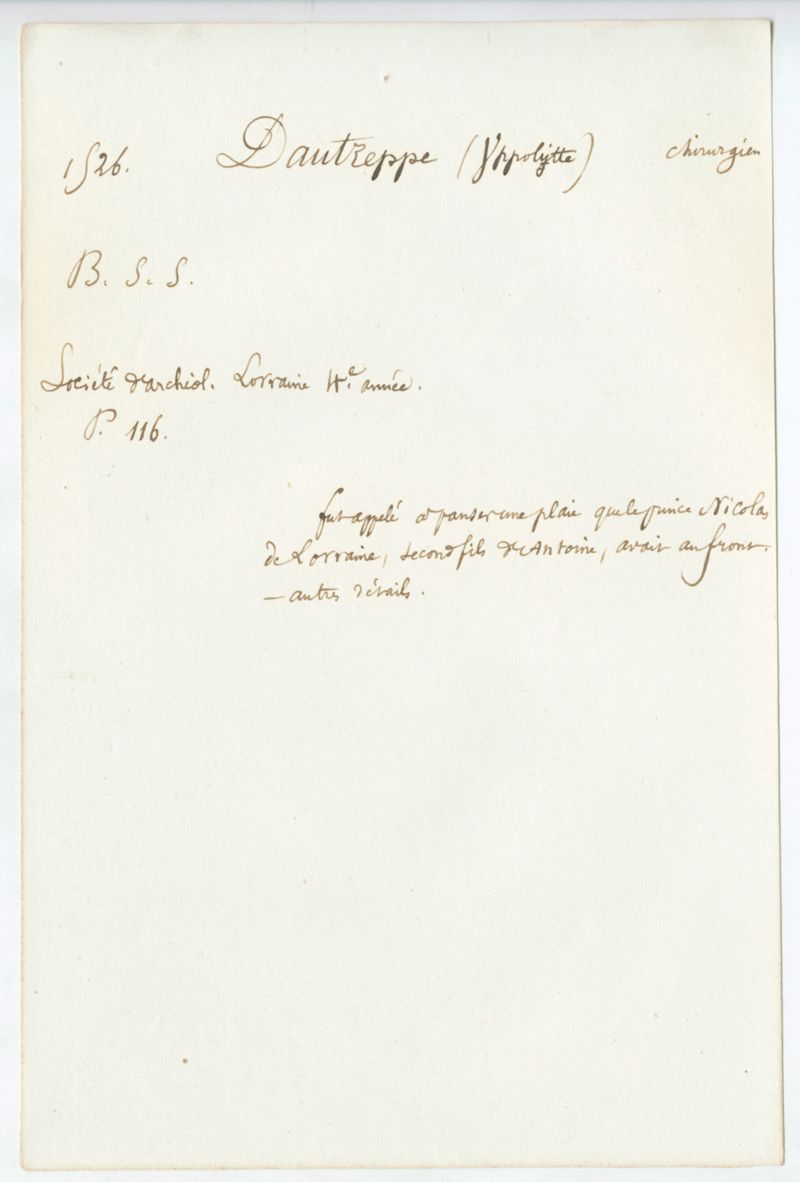 1526. Dautreppe (Yppolytte) chirurgien
B. S. S.
Société d'archéol. Lorraine 4e. année.
P. 116.
fut appelé a panser une plaie que le prince Nicolas
de Lorraine, second fils d'Antoine, avait au front.
— autres détails.